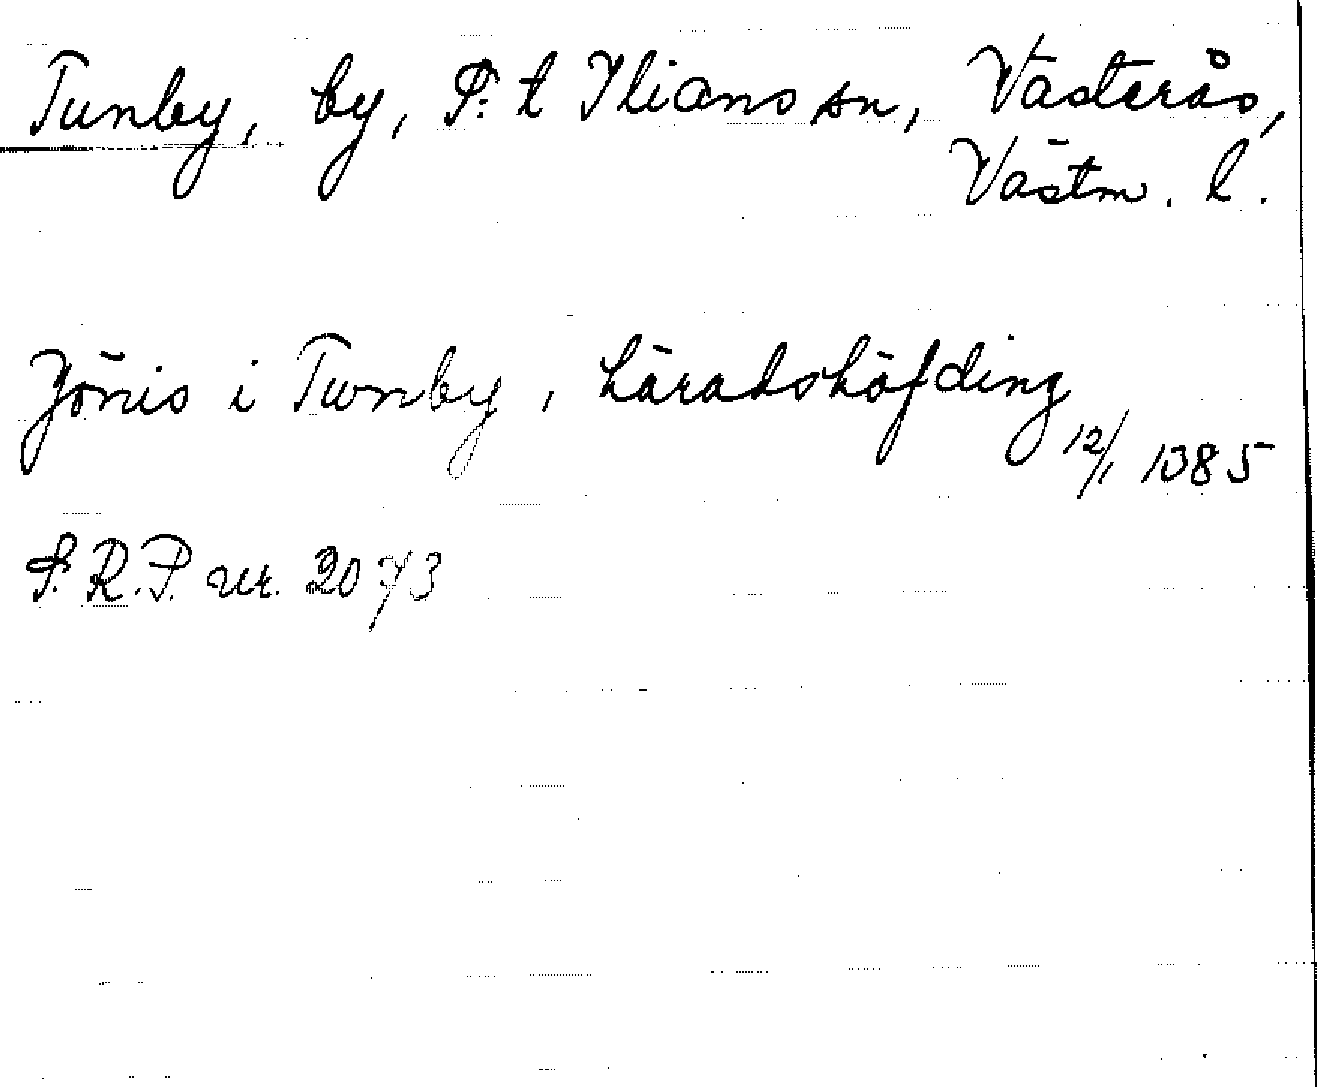 Tunby, by, S:t Ilians sn, Västerås,
Västm. l.
Jönis i Tunby, häradshöfding
12/1 1385
S.R.P. nr. 2073